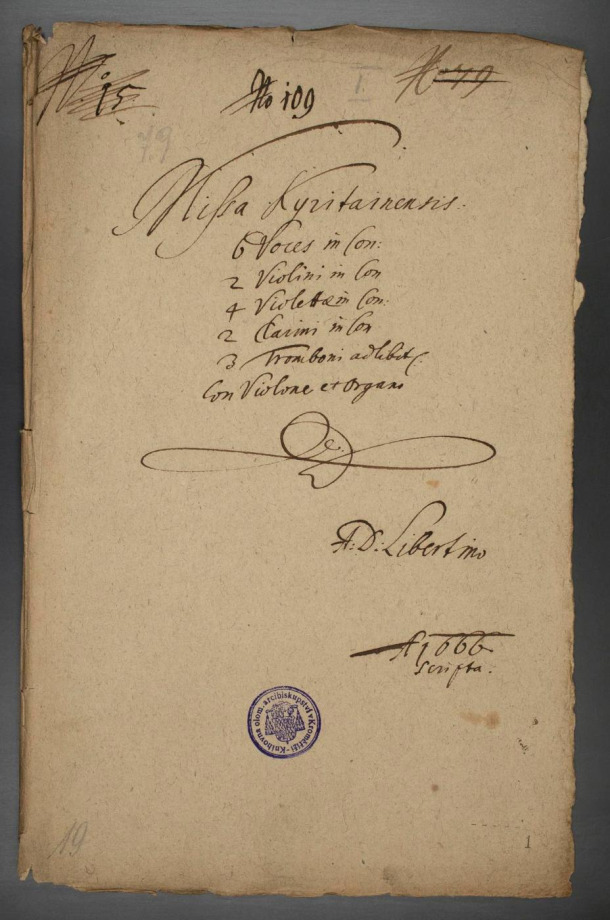 No 15
No 109
I.
No 79
79
Missa Kyritainensis:
6 Voces in Con:
2 Violini in Con
4 Violettæ in Con:
2 Clarini in Con
3 Tromboni ad libit:
Con Violone et Organo
A: D: Libertino
A 1666
Scripta:
Knihovna olom. arcibiskupství v Kroměříži
19
1